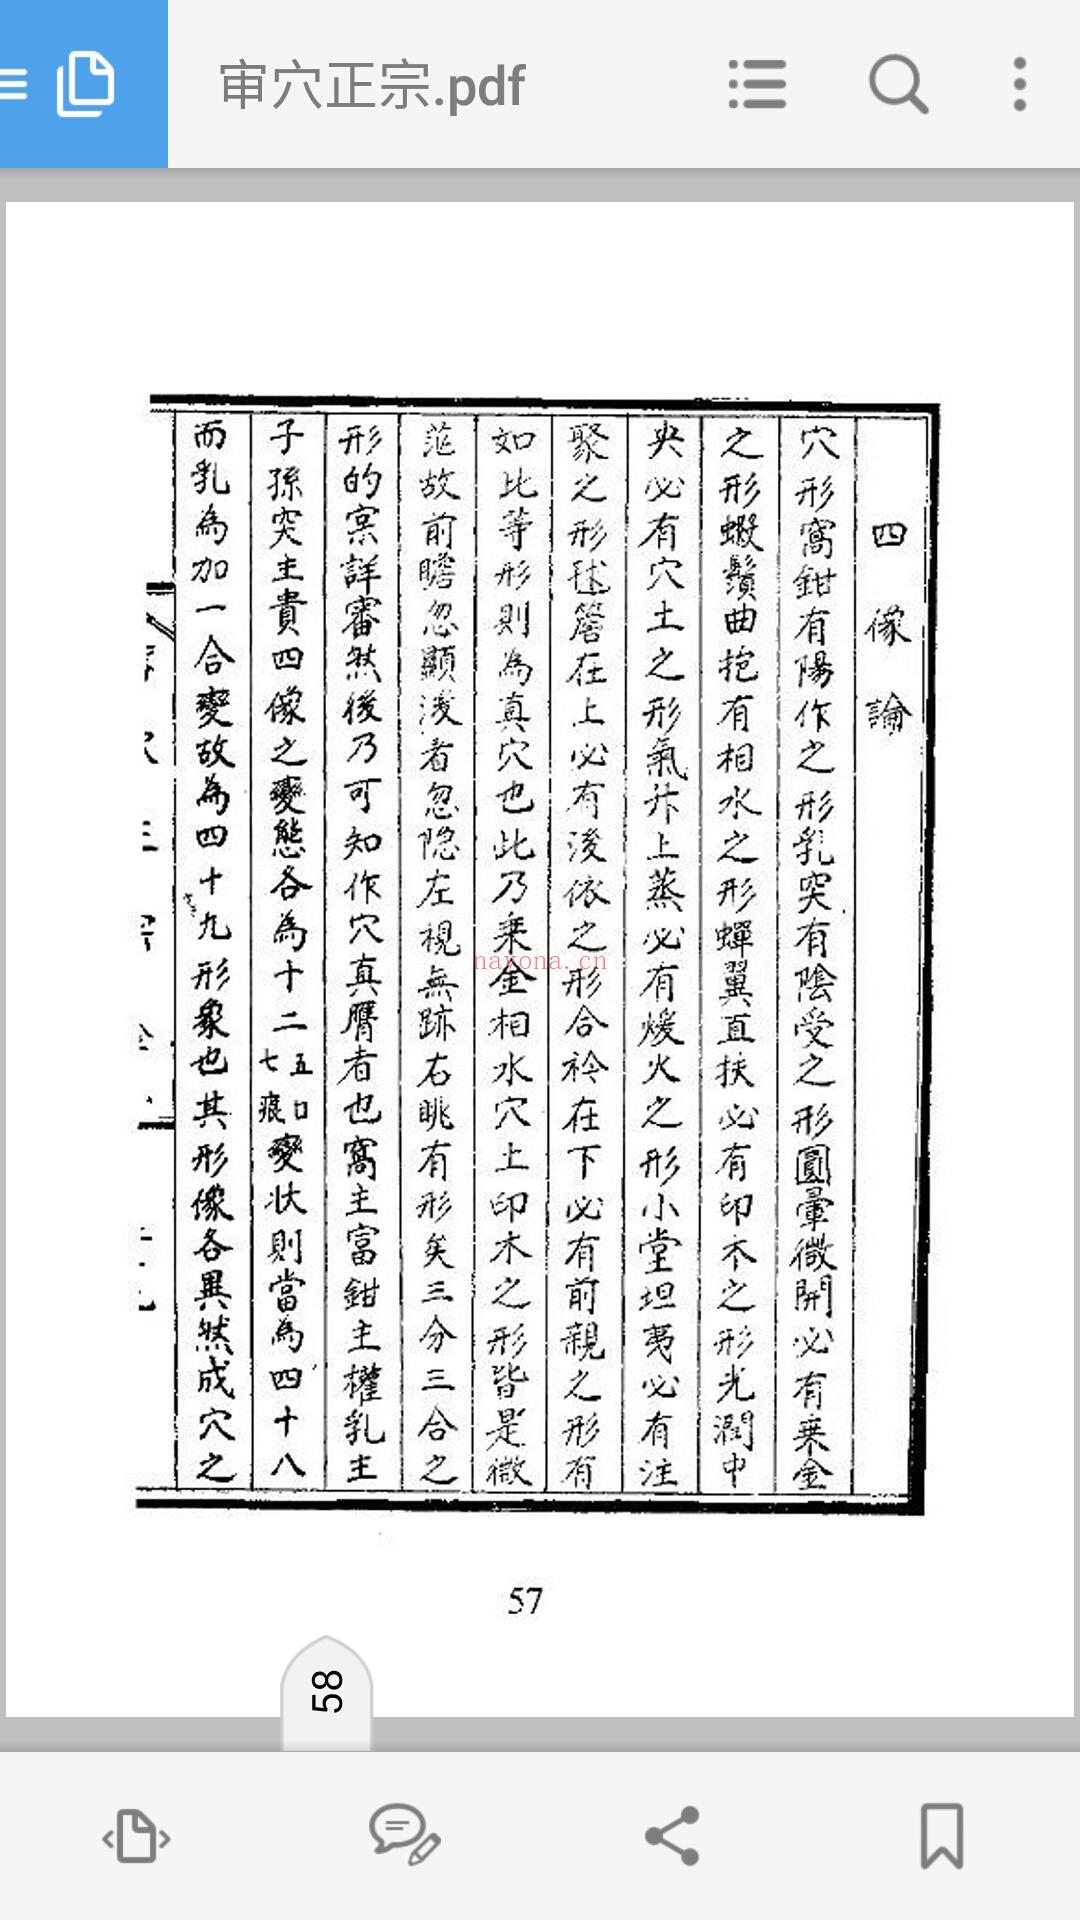 审穴正宗.pdf
四像論
穴形窩鉗有陽作之形乳突有陰受之形圓暈微開必有乗金
之形蝦鬚曲抱有相水之形蟬翼直扶必有印木之形光潤中
央必有穴土之形氣升上蒸必有煖火之形小堂坦夷必有注
聚之形毬簷在上必有後依之形合衿在下必有前親之形有
如此等形則為真穴也此乃乗金相水穴土印木之形皆是微
茫故前瞻忽顯後看忽隐左視無跡右眺有形矣三分三合之
形的宲詳審然後乃可知作穴真膺者也窩主富鉗主權乳主
子孫突主貴四像之變態各為十二五口七痕變状則當為四十八
而乳為加一合變故為四十九形象也其形像各異然成穴之
nayona.cn
57
58